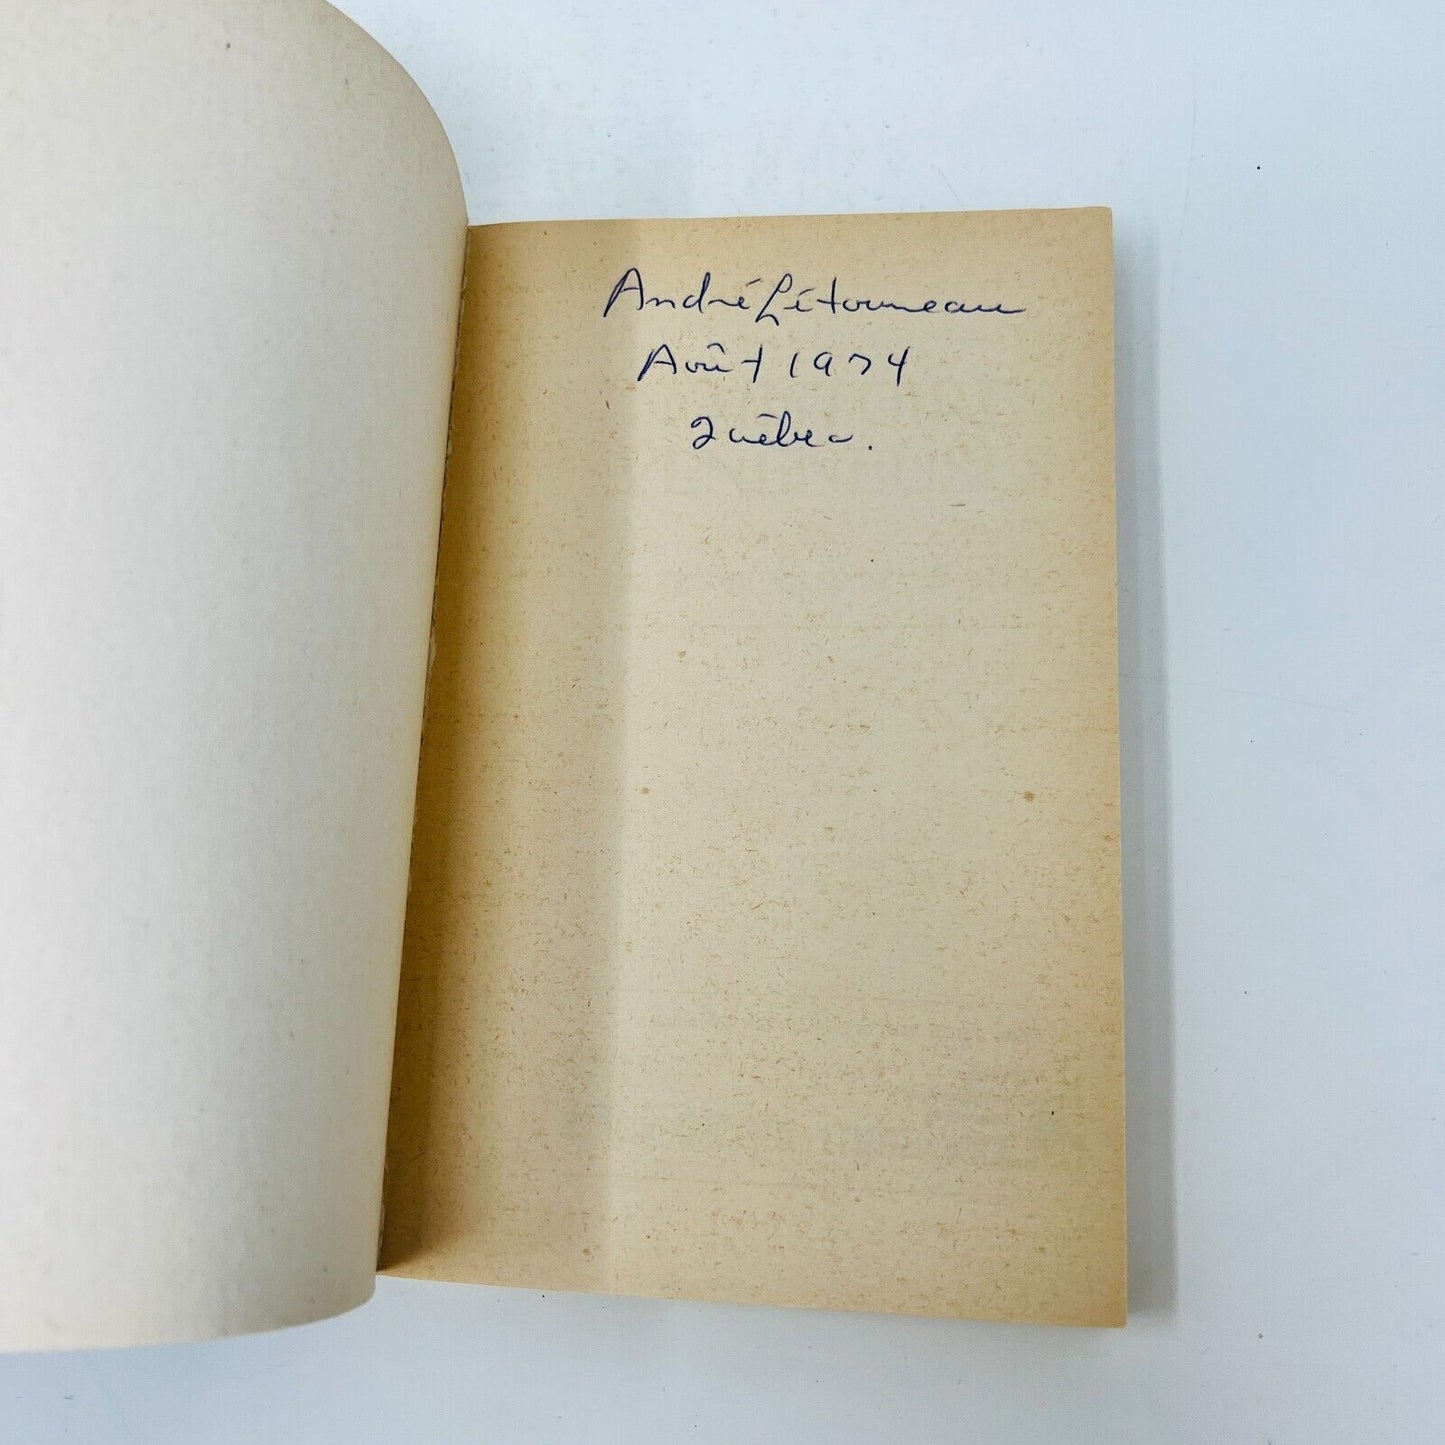 André Létourneau
Août 1974
Québec.